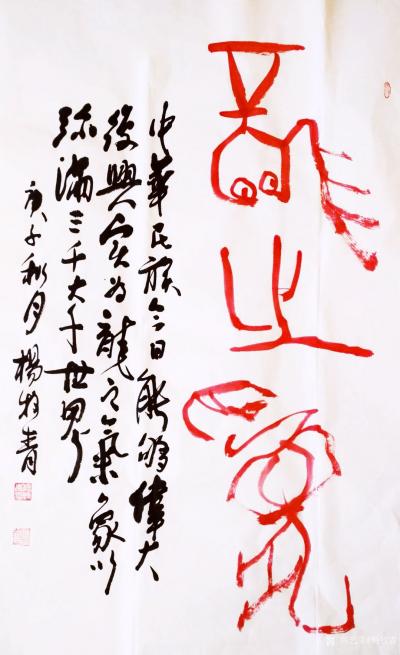 龍之
中華民族今日能夠偉大
復興實為龍之氣象以
弥滿三千大千世界
庚子秋月 楊牧青